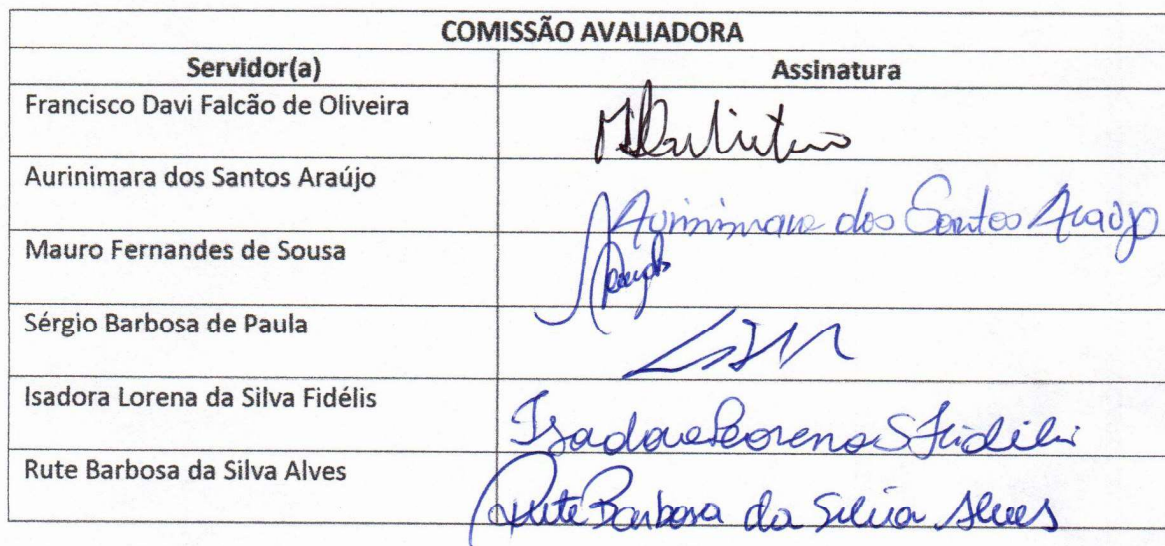 COMISSÃO AVALIADORA
Servidor(a) Assinatura
Francisco Davi Falcão de Oliveira
Aurinimara dos Santos Araújo Aurinimara dos Santos Araújo
Mauro Fernandes de Sousa
Sérgio Barbosa de Paula
Isadora Lorena da Silva Fidélis Isadora Lorena S Fidélis
Rute Barbosa da Silva Alves Rute Barbosa da Silva Alves